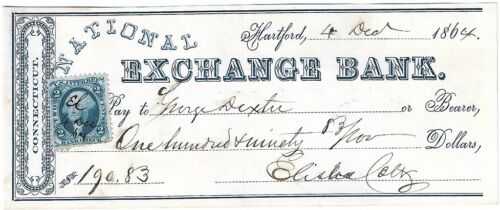 NATIONAL
Hartford, 4 Decr 1864.
EXCHANGE BANK.
CONNECTICUT.
Pay to George Dexter or Bearer,
One hundred & ninety 83/100 Dollars,
$190.83
Elisha Colt
2 2